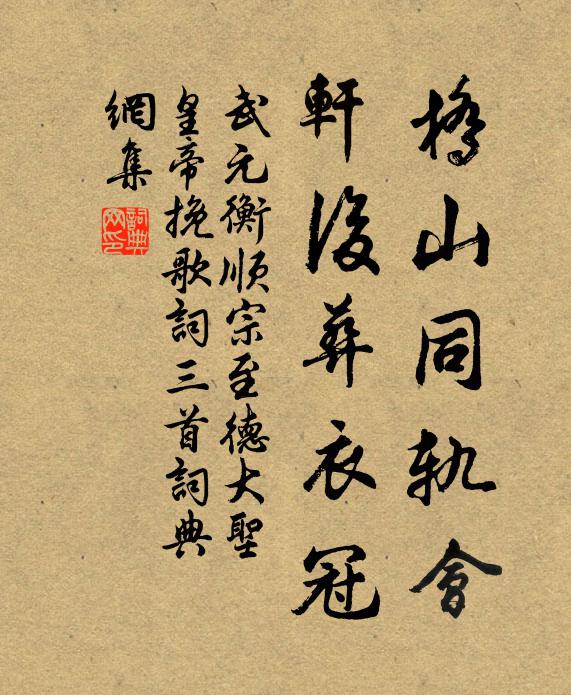 橋山同軌會
軒後葬衣冠
武元衡順宗至德大聖
皇帝挽歌詞三首詞典
網集
詞典
网印